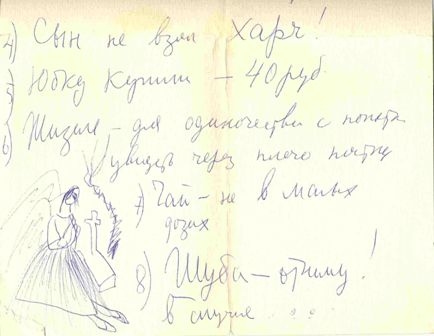 4) Сын не взял Харч!
5) Юбку купили – 40 руб.
6) Жизель – для одиночества с
увидеть через плечо
7) Чай – не в малых
дозах
8) Шуба – отниму!
В случае ...